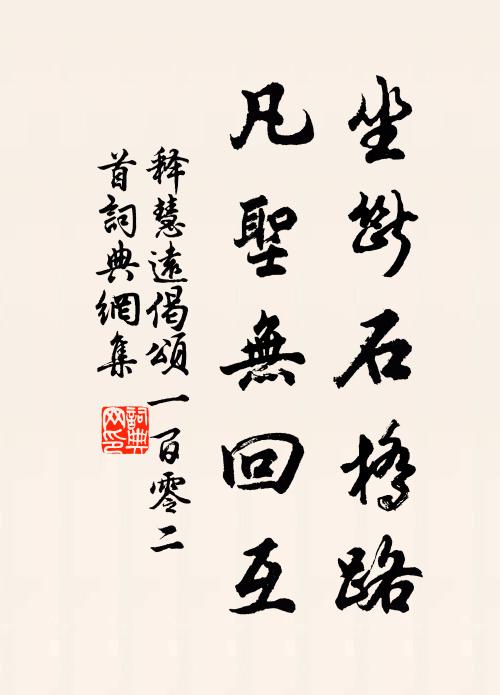 坐斷石橋路
凡聖無回互
释慧遠偈頌一百零二
首詞典網集
詞典
网印